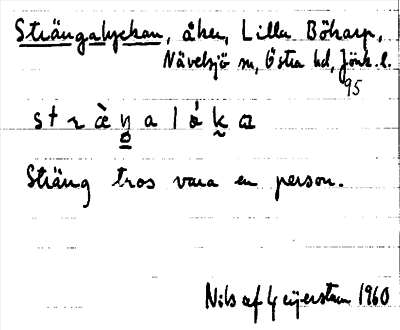 Strängalyckan, åker, Lilla Böharp,
Nävelsjö sn, Östra hd, Jönk. l.
95
Sträng tros vara en person.
Nils af Geijerstam 1960